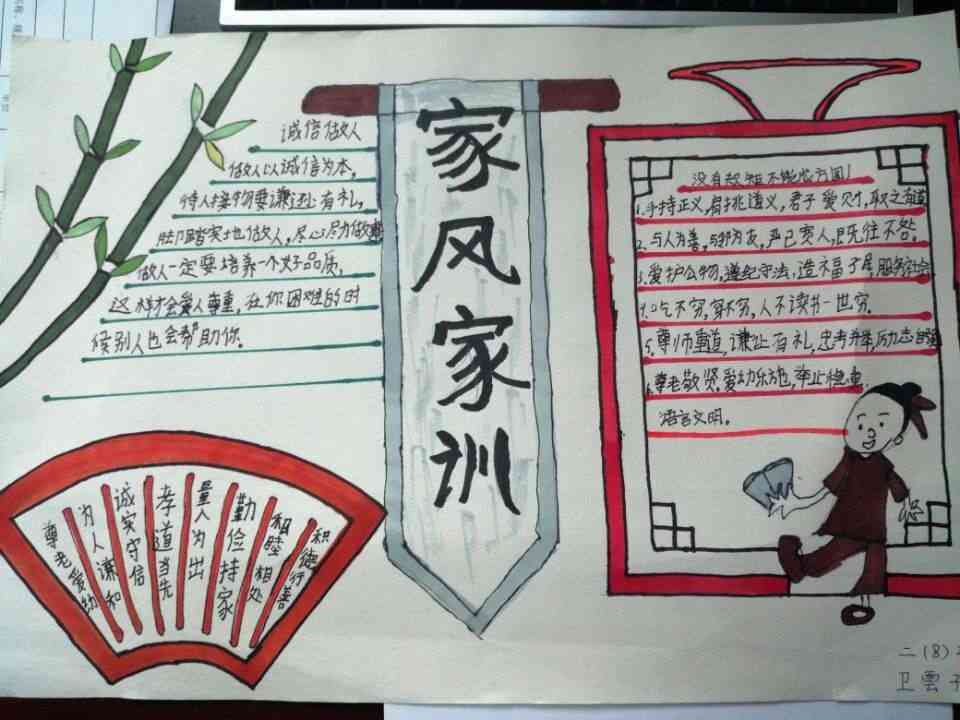 家风家训
诚信做人
做人以诚信为本,
待人接物要谦逊有礼,
脚踏实地做人,尽心尽力做事
做人一定要培养一个好品质,
这样才会受人尊重,在你困难的时
候别人也会帮助你。
没有规矩不能成方圆!
1.手持正义,肩挑道义,君子爱财,取之有道
2.与人为善,与邻为友,严己宽人,既往不咎。
3.爱护公物,遵纪守法,造福子属,服务社会
4.吃不穷,穿不穷,人不读书一世穷。
5.尊师重道,谦让有礼,忠孝并举,励志
6.尊老敬贤,爱幼乐施,举止稳重,
语言文明。
尊老爱幼
为人谦和
诚实守信
孝道当先
量入为出
勤俭持家
和睦相处
积德行善
二(8)
卫雲子